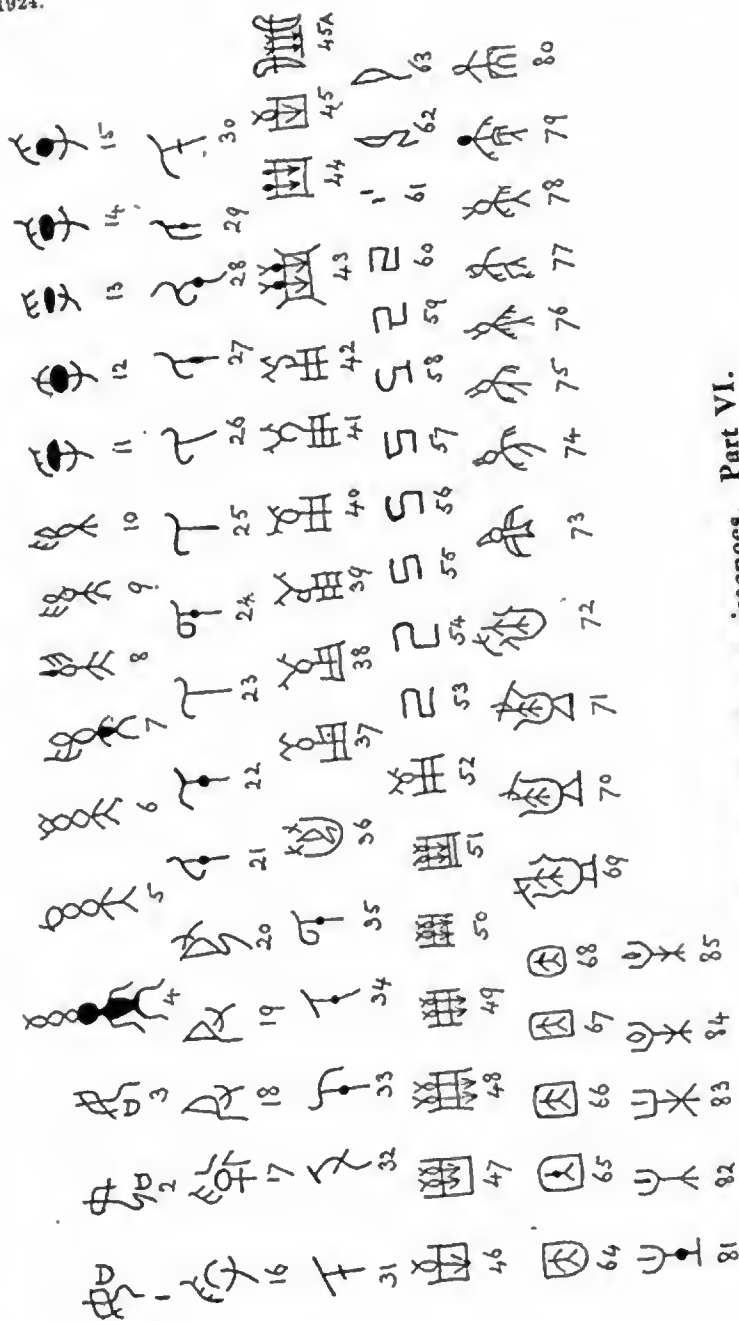 1924.
1 2 3 4 5 6 7 8 9 10 11 12 13 14 15
16 17 18 19 20 21 22 23 24 25 26 27 28 29 30
31 32 33 34 35 36 37 38 39 40 41 42 43 44 45 45A
46 47 48 49 50 51 52 53 54 55 56 57 58 59 60 61 62 63
64 65 66 67 68 69 70 71 72 73 74 75 76 77 78 79 80
81 82 83 84 85
Part VI.